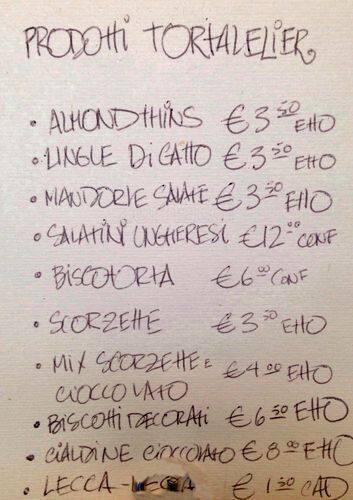 PRODOTTI TORTALELIER
• ALMOND THINS € 3 50 ETTO
• LINGUE DI GATTO € 3 50 ETTO
• MANDORLE SALATE € 3 50 ETTO
• SALATINI UNGHERESI € 12 00 CONF
• BISCOTORTA € 6 00 CONF
• SCORZETTE € 3 50 ETTO
• MIX SCORZETTE E € 4 00 ETTO
CIOCCOLATO
• BISCOTTI DECORATI € 6 50 ETTO
• CIALDINE CIOCCOLATO € 8 00 ETTO
• LECCA-LECCA € 1 50 CAD